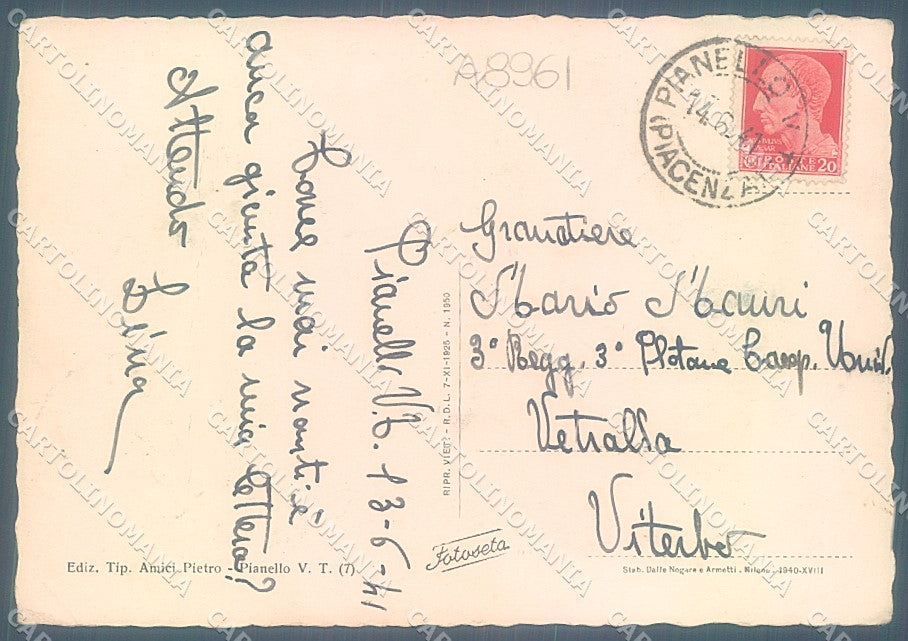 A8961
PIANELLO V.T.
14.6.41
(PIACENZA)
IVLIVS
CAESAR
POSTE
ITALIANE 20
Pianello V.T. 13-6-41
Come mai non ti è
anca giunta la mia lettera?
Attendo
Lina
Granatiere
Mario Mauri
3° Regg. 3° Plotone Comp. Univ.
Vetralla
Viterbo
RIPR. VIET. - R.D.L. 7-XI-1925 - N. 1950
Fotoseta
Ediz. Tip. Amici Pietro - Pianello V. T. (7)
Stab. Dalle Nogare e Armetti - Milano - 1940-XVIII
CARTOLINOMANIA